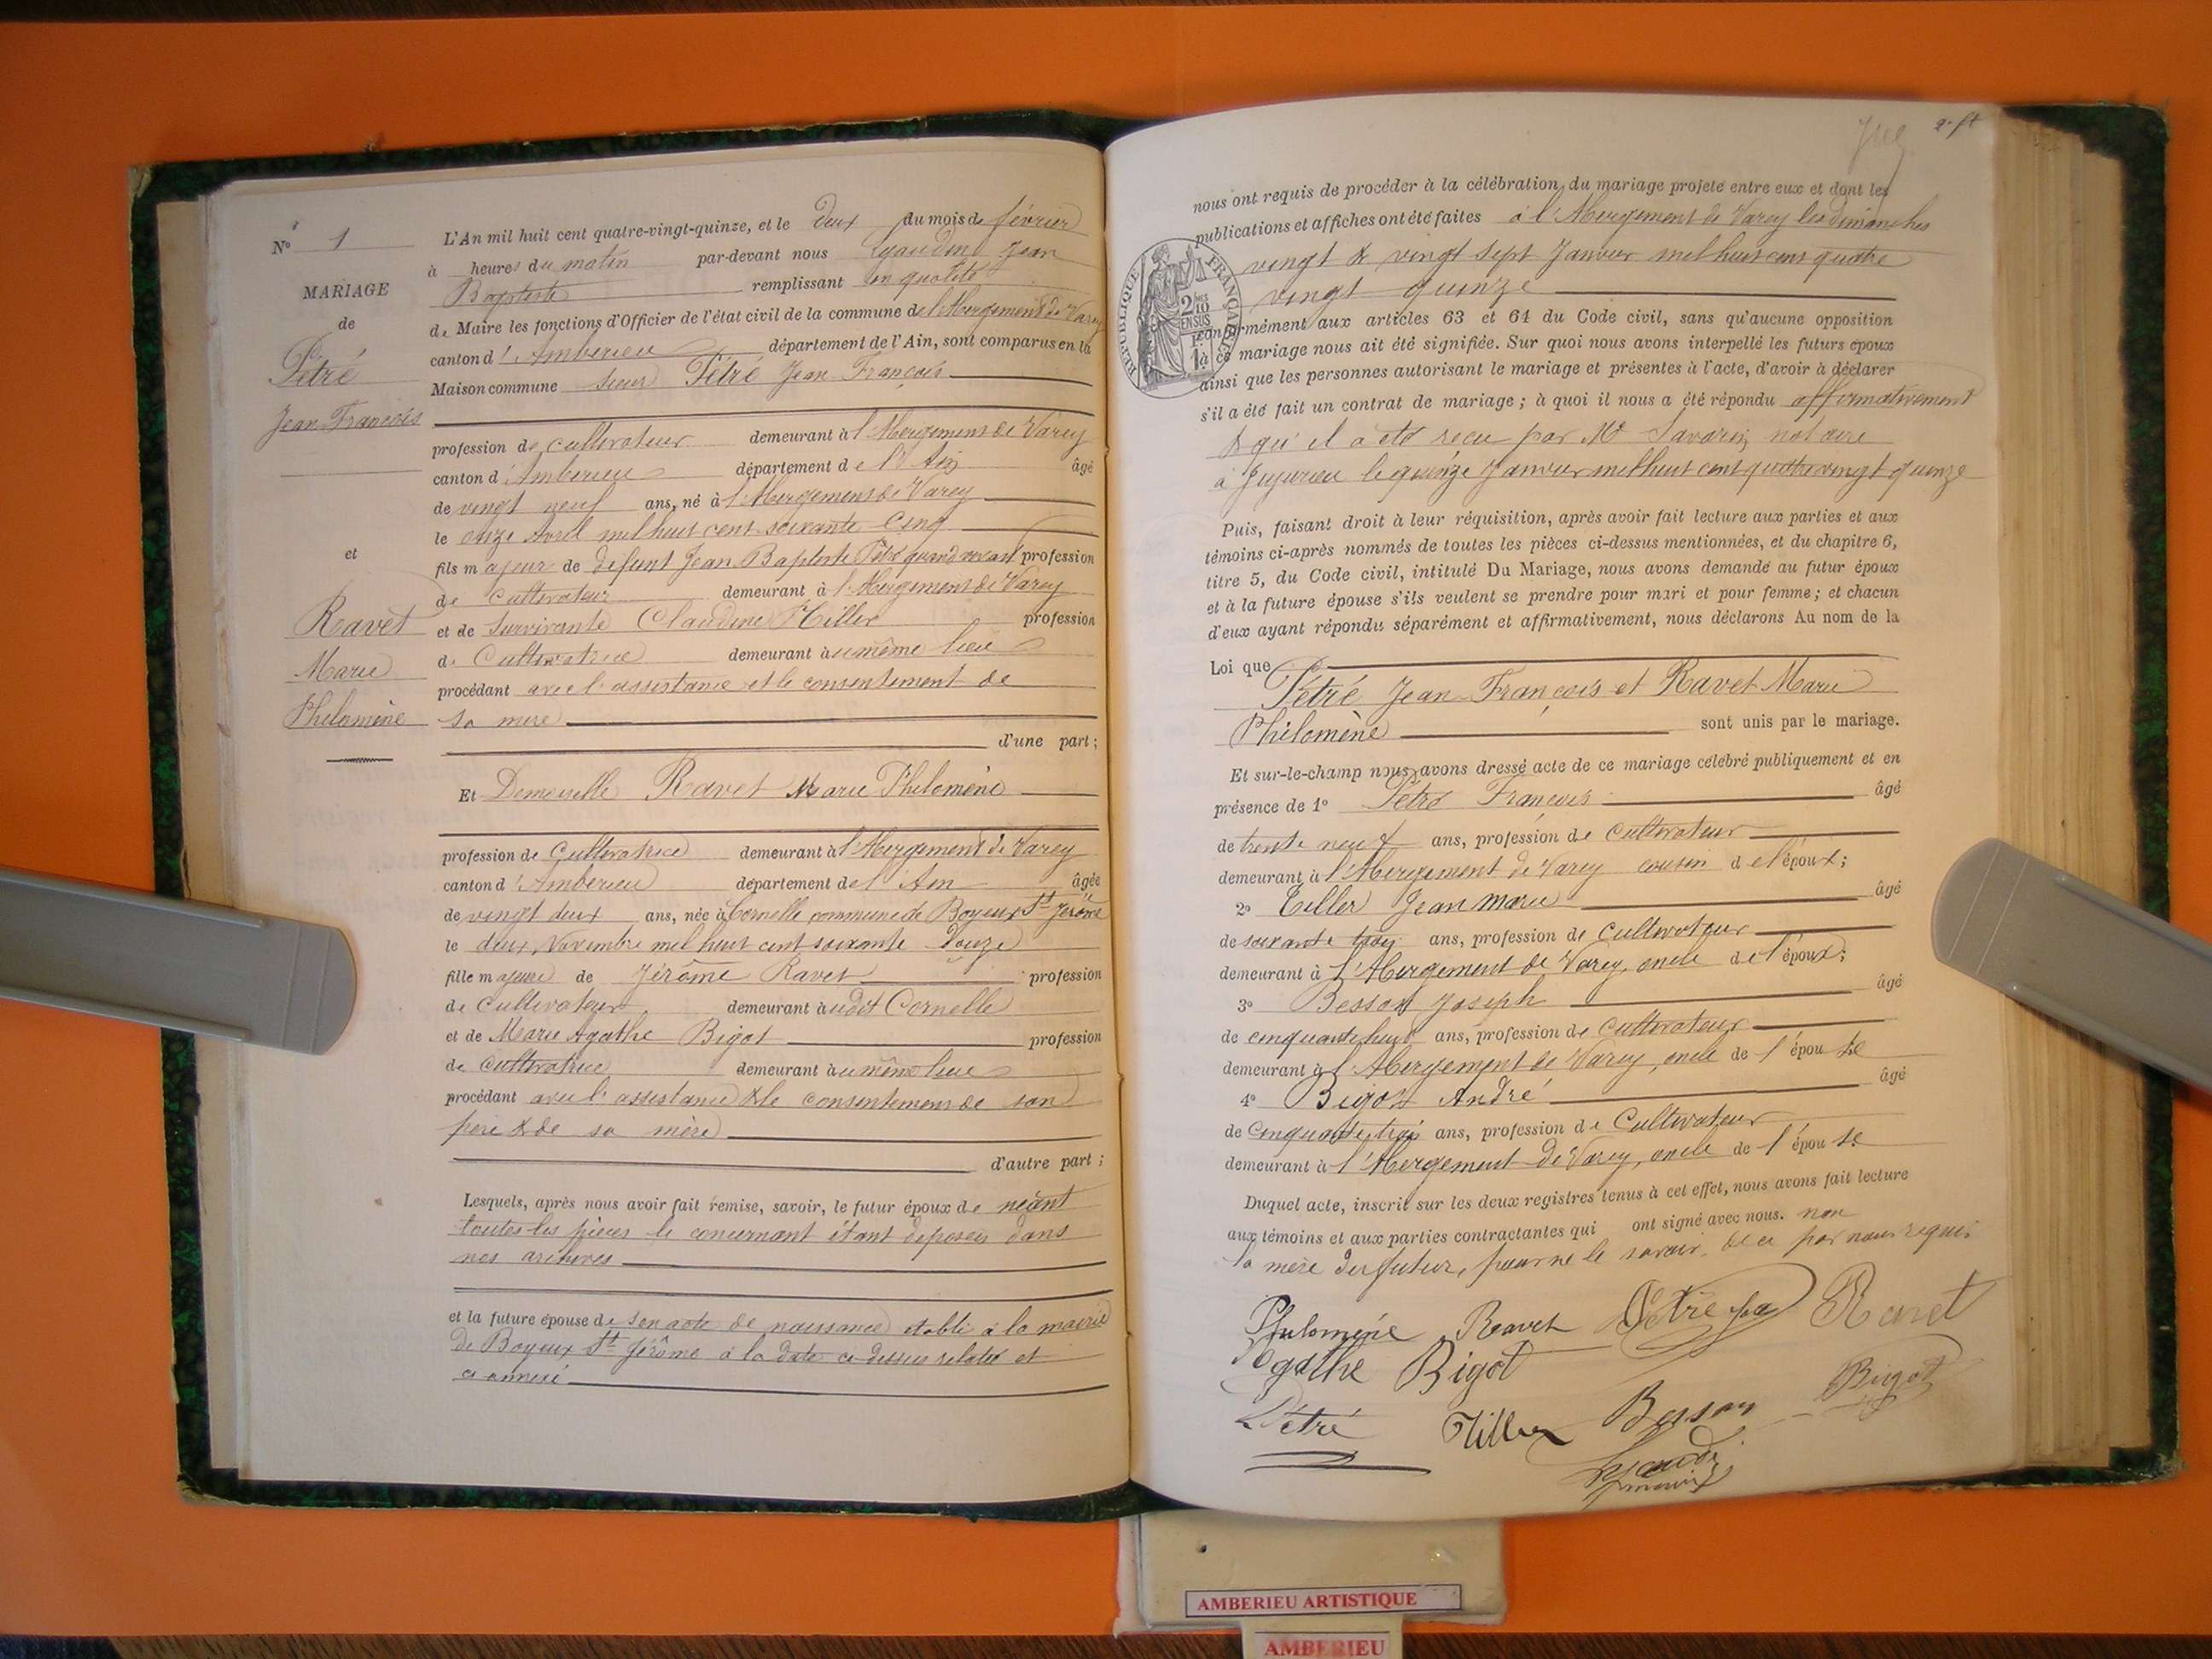 N° 1
MARIAGE
de
Pétré
Jean François
et
Ravet
Marie
Philomène
L'An mil huit cent quatre-vingt-quinze, et le deux du mois de février
à heures du matin par-devant nous Jean
Baptiste remplissant en qualité
de Maire les fonctions d'Officier de l'état civil de la commune de l'Abergement de Varey
canton d'Amberieu département de l'Ain, sont comparus en la
Maison commune sieur Pétré Jean François
profession de cultivateur demeurant à l'Abergement de Varey
canton d'Amberieu département de l'Ain âgé
de vingt neuf ans, né à l'Abergement de Varey
le onze Avril mil huit cent soixante cinq
fils majeur de défunt Jean Baptiste Pétré quand vivant profession
de cultivateur demeurant à l'Abergement de Varey
et de survivante Claudine Tiller profession
de Cultivatrice demeurant au même lieu
procédant avec l'assistance et le consentement de
sa mère
d'une part;
Et Demoiselle Ravet Marie Philomène
profession de Cultivatrice demeurant à l'Abergement de Varey
canton d'Amberieu département de l'Ain âgée
de vingt deux ans, née à Cornelle commune de Boyeux St Jérôme
le deux Novembre mil huit cent soixante douze
fille majeure de Jérôme Ravet profession
de cultivateur demeurant audit Cornelle
et de Marie Agathe Bigot profession
de cultivatrice demeurant au même lieu
procédant avec l'assistance & le consentement de son
père & de sa mère
d'autre part;
Lesquels, après nous avoir fait remise, savoir, le futur époux de néant
toutes les pièces le concernant étant déposées dans
nos archives
et la future épouse de son acte de naissance établi à la mairie
de Boyeux St Jérôme à la date ci-dessus relatée et
ci annexé
2e ft
nous ont requis de procéder à la célébration du mariage projeté entre eux et dont les
publications et affiches ont été faites à l'Abergement de Varey les dimanches
vingt & vingt sept Janvier mil huit cent quatre
vingt quinze
RÉPUBLIQUE FRANÇAISE
2/10 EN SUS
conformément aux articles 63 et 64 du Code civil, sans qu'aucune opposition
à ce mariage nous ait été signifiée. Sur quoi nous avons interpellé les futurs époux
ainsi que les personnes autorisant le mariage et présentes à l'acte, d'avoir à déclarer
s'il a été fait un contrat de mariage; à quoi il nous a été répondu affirmativement
& qu'il a été reçu par Me Savarin notaire
à Jujurieu le quinze Janvier mil huit cent quatre vingt quinze
Puis, faisant droit à leur réquisition, après avoir fait lecture aux parties et aux
témoins ci-après nommés de toutes les pièces ci-dessus mentionnées, et du chapitre 6,
titre 5, du Code civil, intitulé Du Mariage, nous avons demandé au futur époux
et à la future épouse s'ils veulent se prendre pour mari et pour femme; et chacun
d'eux ayant répondu séparément et affirmativement, nous déclarons Au nom de la
Loi que
Pétré Jean François et Ravet Marie
Philomène sont unis par le mariage.
Et sur-le-champ nous avons dressé acte de ce mariage célébré publiquement et en
présence de 1° Pétré François âgé
de trente neuf ans, profession de cultivateur
demeurant à l'Abergement de Varey cousin de l'époux;
2° Tiller Jean Marie âgé
de soixante trois ans, profession de cultivateur
demeurant à l'Abergement de Varey, oncle de l'époux;
3° Besson Joseph âgé
de cinquante huit ans, profession de cultivateur
demeurant à l'Abergement de Varey, oncle de l'épouse
4° Bigot André âgé
de Cinquante trois ans, profession de Cultivateur
demeurant à l'Abergement de Varey, oncle de l'épouse
Duquel acte, inscrit sur les deux registres tenus à cet effet, nous avons fait lecture
aux témoins et aux parties contractantes qui ont signé avec nous. non
la mère du futur, pour ne le savoir, de ce par nous requis
Philomène Ravet Pétré Ravet
Agathe Bigot
Pétré Tiller Besson Bigot
AMBERIEU ARTISTIQUE
AMBERIEU